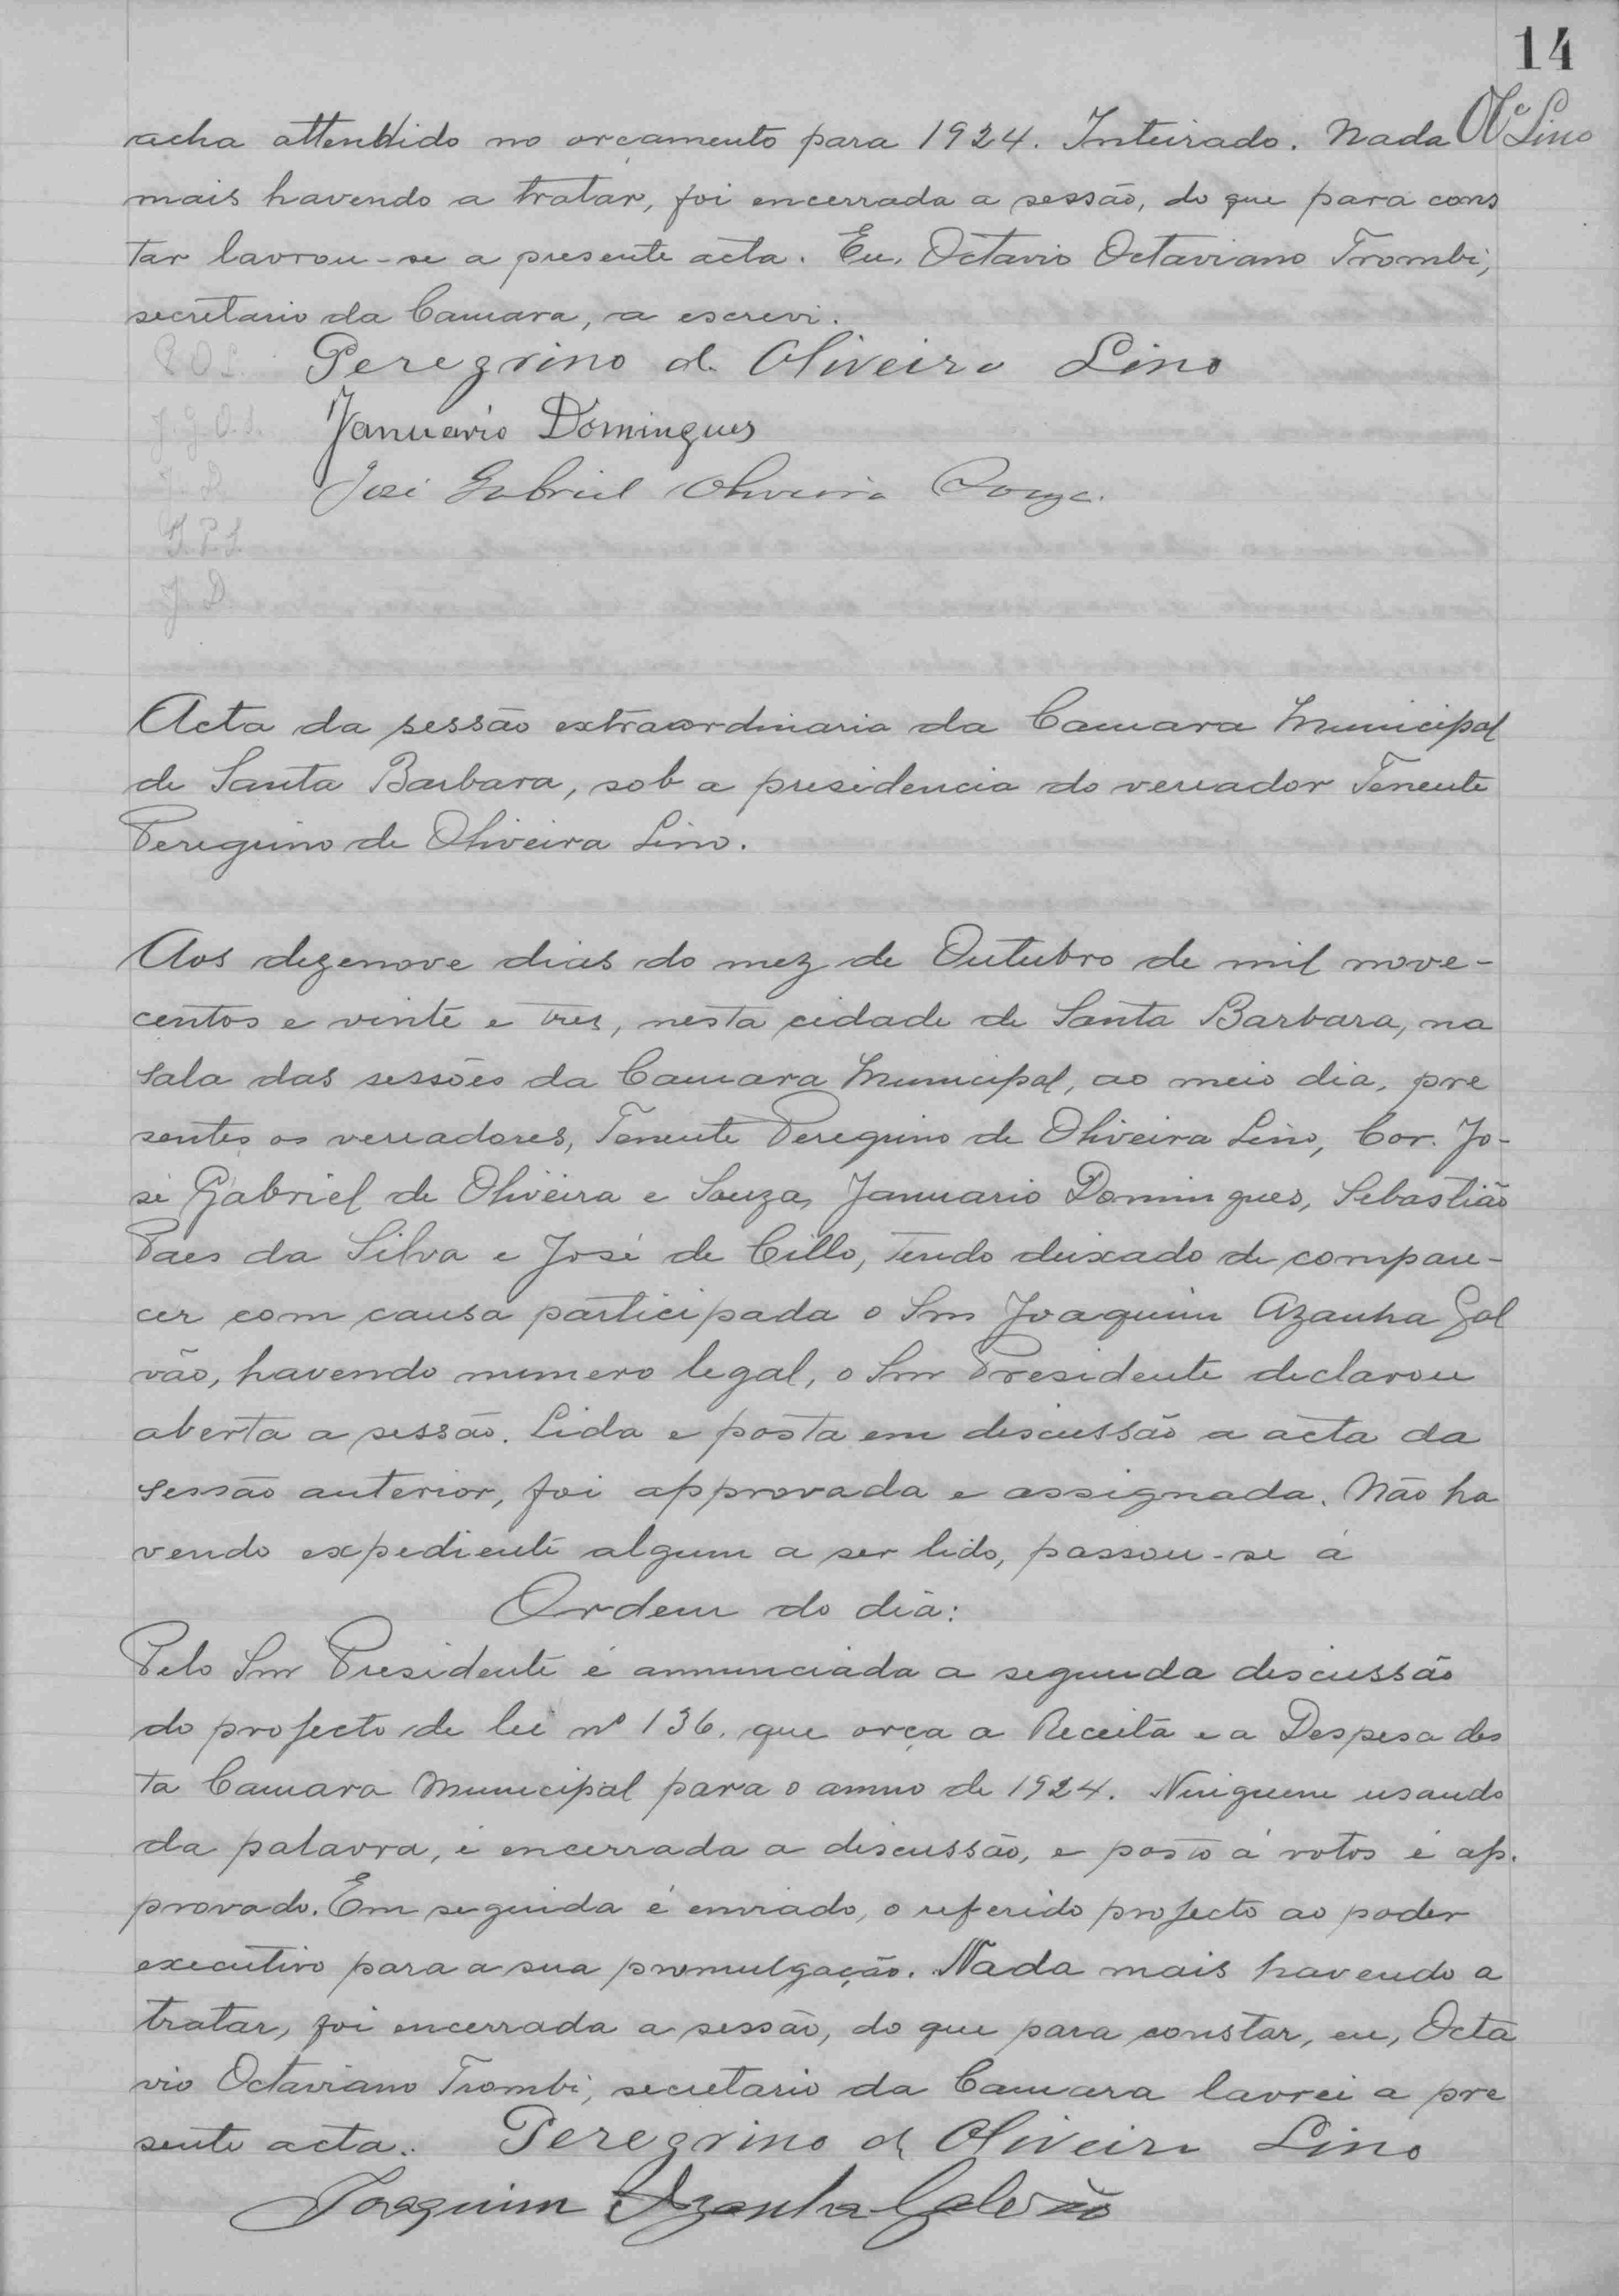 14
Ol.ª Lino
acha attendido no orçamento para 1924. Inteirado. Nada
mais havendo a tratar, foi encerrada a sessão, do que para cons
tar lavrou-se a presente acta. Eu, Octavio Octaviano Trombi,
secretario da Camara, a escrevi.
P.O.L. Peregrino d Oliveira Lino
J.G.O.S. Januario Domingues
J.D. José Gabriel Oliveira Souza.
S.P.S.
J.D.
Acta da sessão extraordinaria da Camara Municipal
de Santa Barbara, sob a presidencia do vereador Tenente
Peregrino de Oliveira Lino.
Aos dezenove dias do mez de Outubro de mil nove-
centos e vinte e tres, nesta cidade de Santa Barbara, na
sala das sessões da Camara Municipal, ao meio dia, pre
sentes os vereadores, Tenente Peregrino de Oliveira Lino, Cor. Jo-
sé Gabriel de Oliveira e Souza, Januario Domingues, Sebastião
Paes da Silva e José de Cillo, tendo deixado de compare-
cer com causa participada o Snr Joaquim Azanha Gal
vão, havendo numero legal, o Snr Presidente declarou
aberta a sessão. Lida e posta em discussão a acta da
sessão anterior, foi approvada e assignada. Não ha
vendo expediente algum a ser lido, passou-se á
Ordem do dia:
Pelo Snr Presidente é annunciada a segunda discussão
do projecto de lei nº 136. que orça a Receita e a Despesa des
ta Camara Municipal para o anno de 1924. Ninguem usando
da palavra, é encerrada a discussão, e posto á votos é ap.
provado. Em seguida é enviado, o referido projecto ao poder
executivo para a sua promulgação. Nada mais havendo a
tratar, foi encerrada a sessão, do que para constar, eu, Octa
vio Octaviano Trombi, secretario da Camara lavrei a pre
sente acta. Peregrino d Oliveira Lino
Joaquim Azanha Galvão